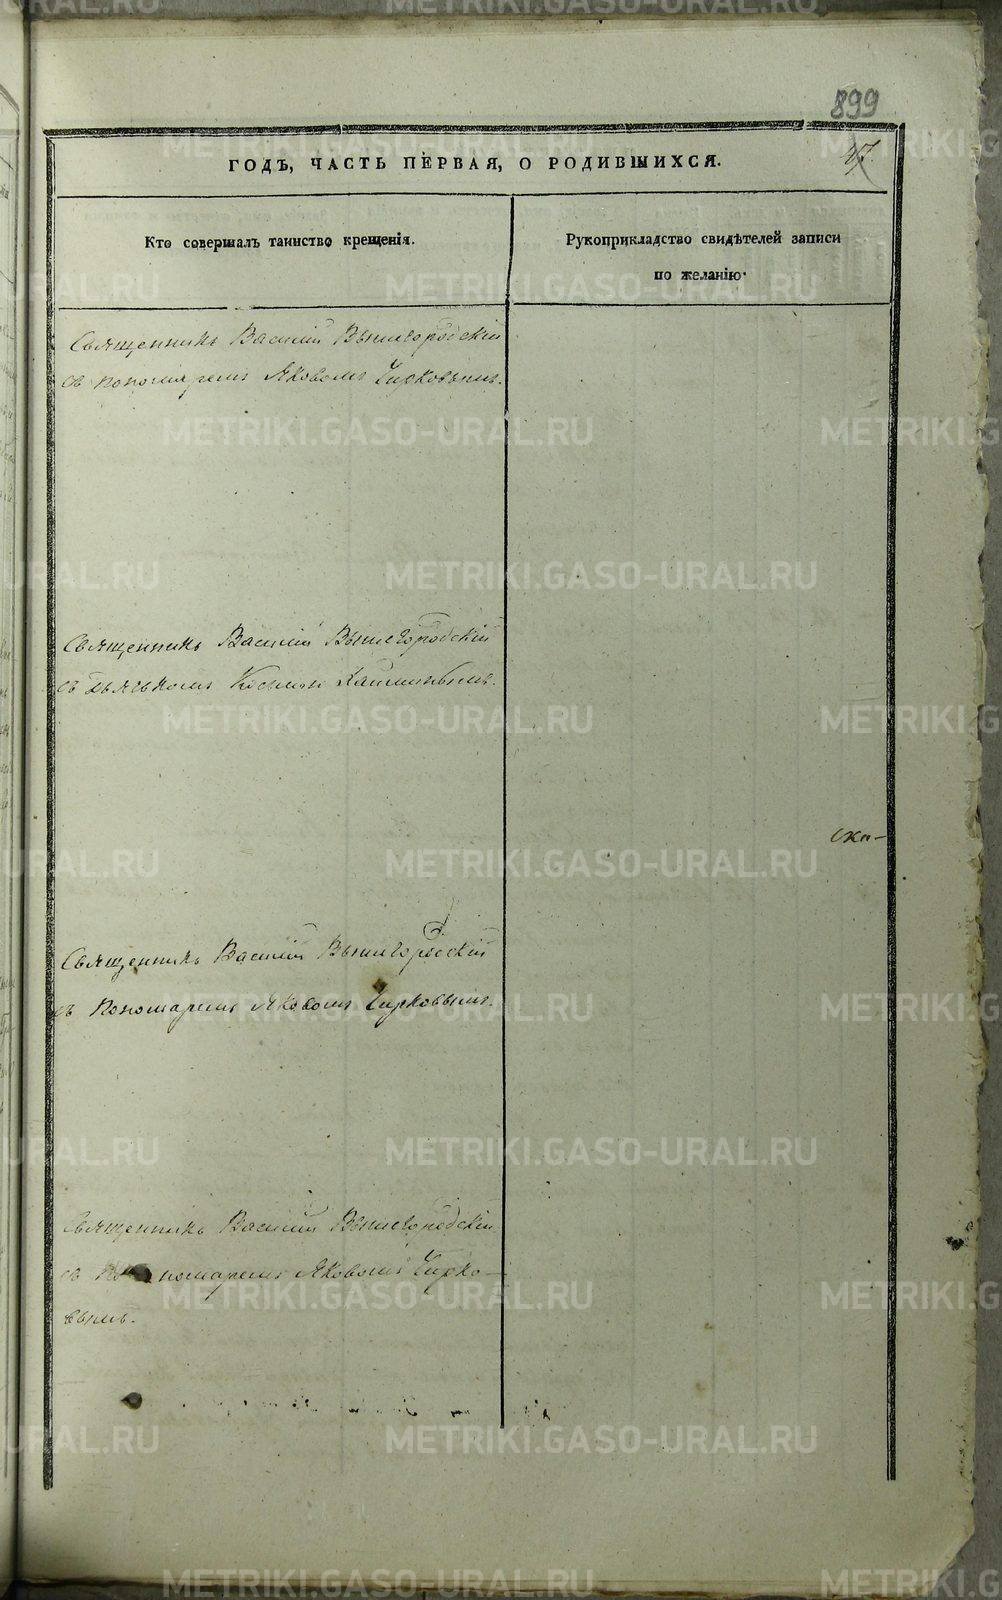 899
27
ГОДЪ, ЧАСТЬ ПЕРВАЯ, О РОДИВШИХСЯ.
Кто совершалъ таинство крещенія.
Рукоприкладство свидѣтелей записи
по желанію.
Священникъ Василій Вышегородскій
съ пономаремъ Яковомъ Чирковымъ.
Священникъ Василій Вышегородскій
съ дьячкомъ
Священникъ Василій Вышегородскій
съ Пономаремъ Яковомъ Чирковымъ.
Священникъ Василій Вышегородскій
съ пономаремъ Яковомъ Чирко-
вымъ.
METRIKI.GASO-URAL.RU